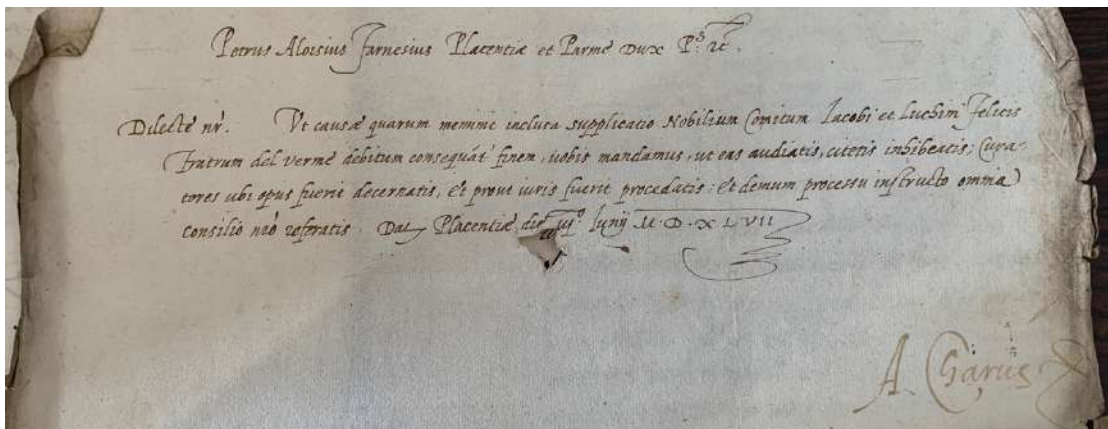 Petrus Aloisius Farnesius Placentiæ et Parmę Dux P.s ꝛc.
Dilectę nr̄. Vt causæ quarum meminit inclusa supplicatio Nobilium Comitum Iacobi et Luchini Felicis
fratrum del vermę debitum consequāt' finem, uobis mandamus, ut eas audiatis, citetis inhibeatis; Cura-
tores ubi opus fuerit decernatis, et prout iuris fuerit procedatis: et demum processu instructo omnia
consilio nr̄o referatis. Dat. Placentiæ die Iunij M.D.XLVII
A. Charus